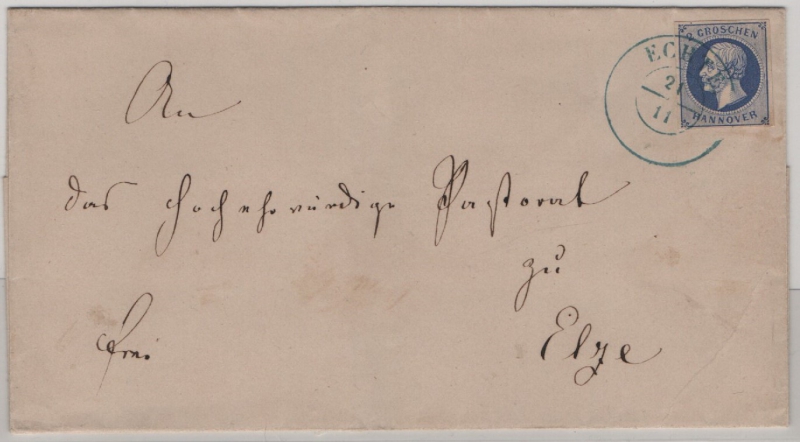 2 GROSCHEN
HANNOVER
ECH
21
11
An
das Hochehrwürdige Pastorat
zu
frei
Elze